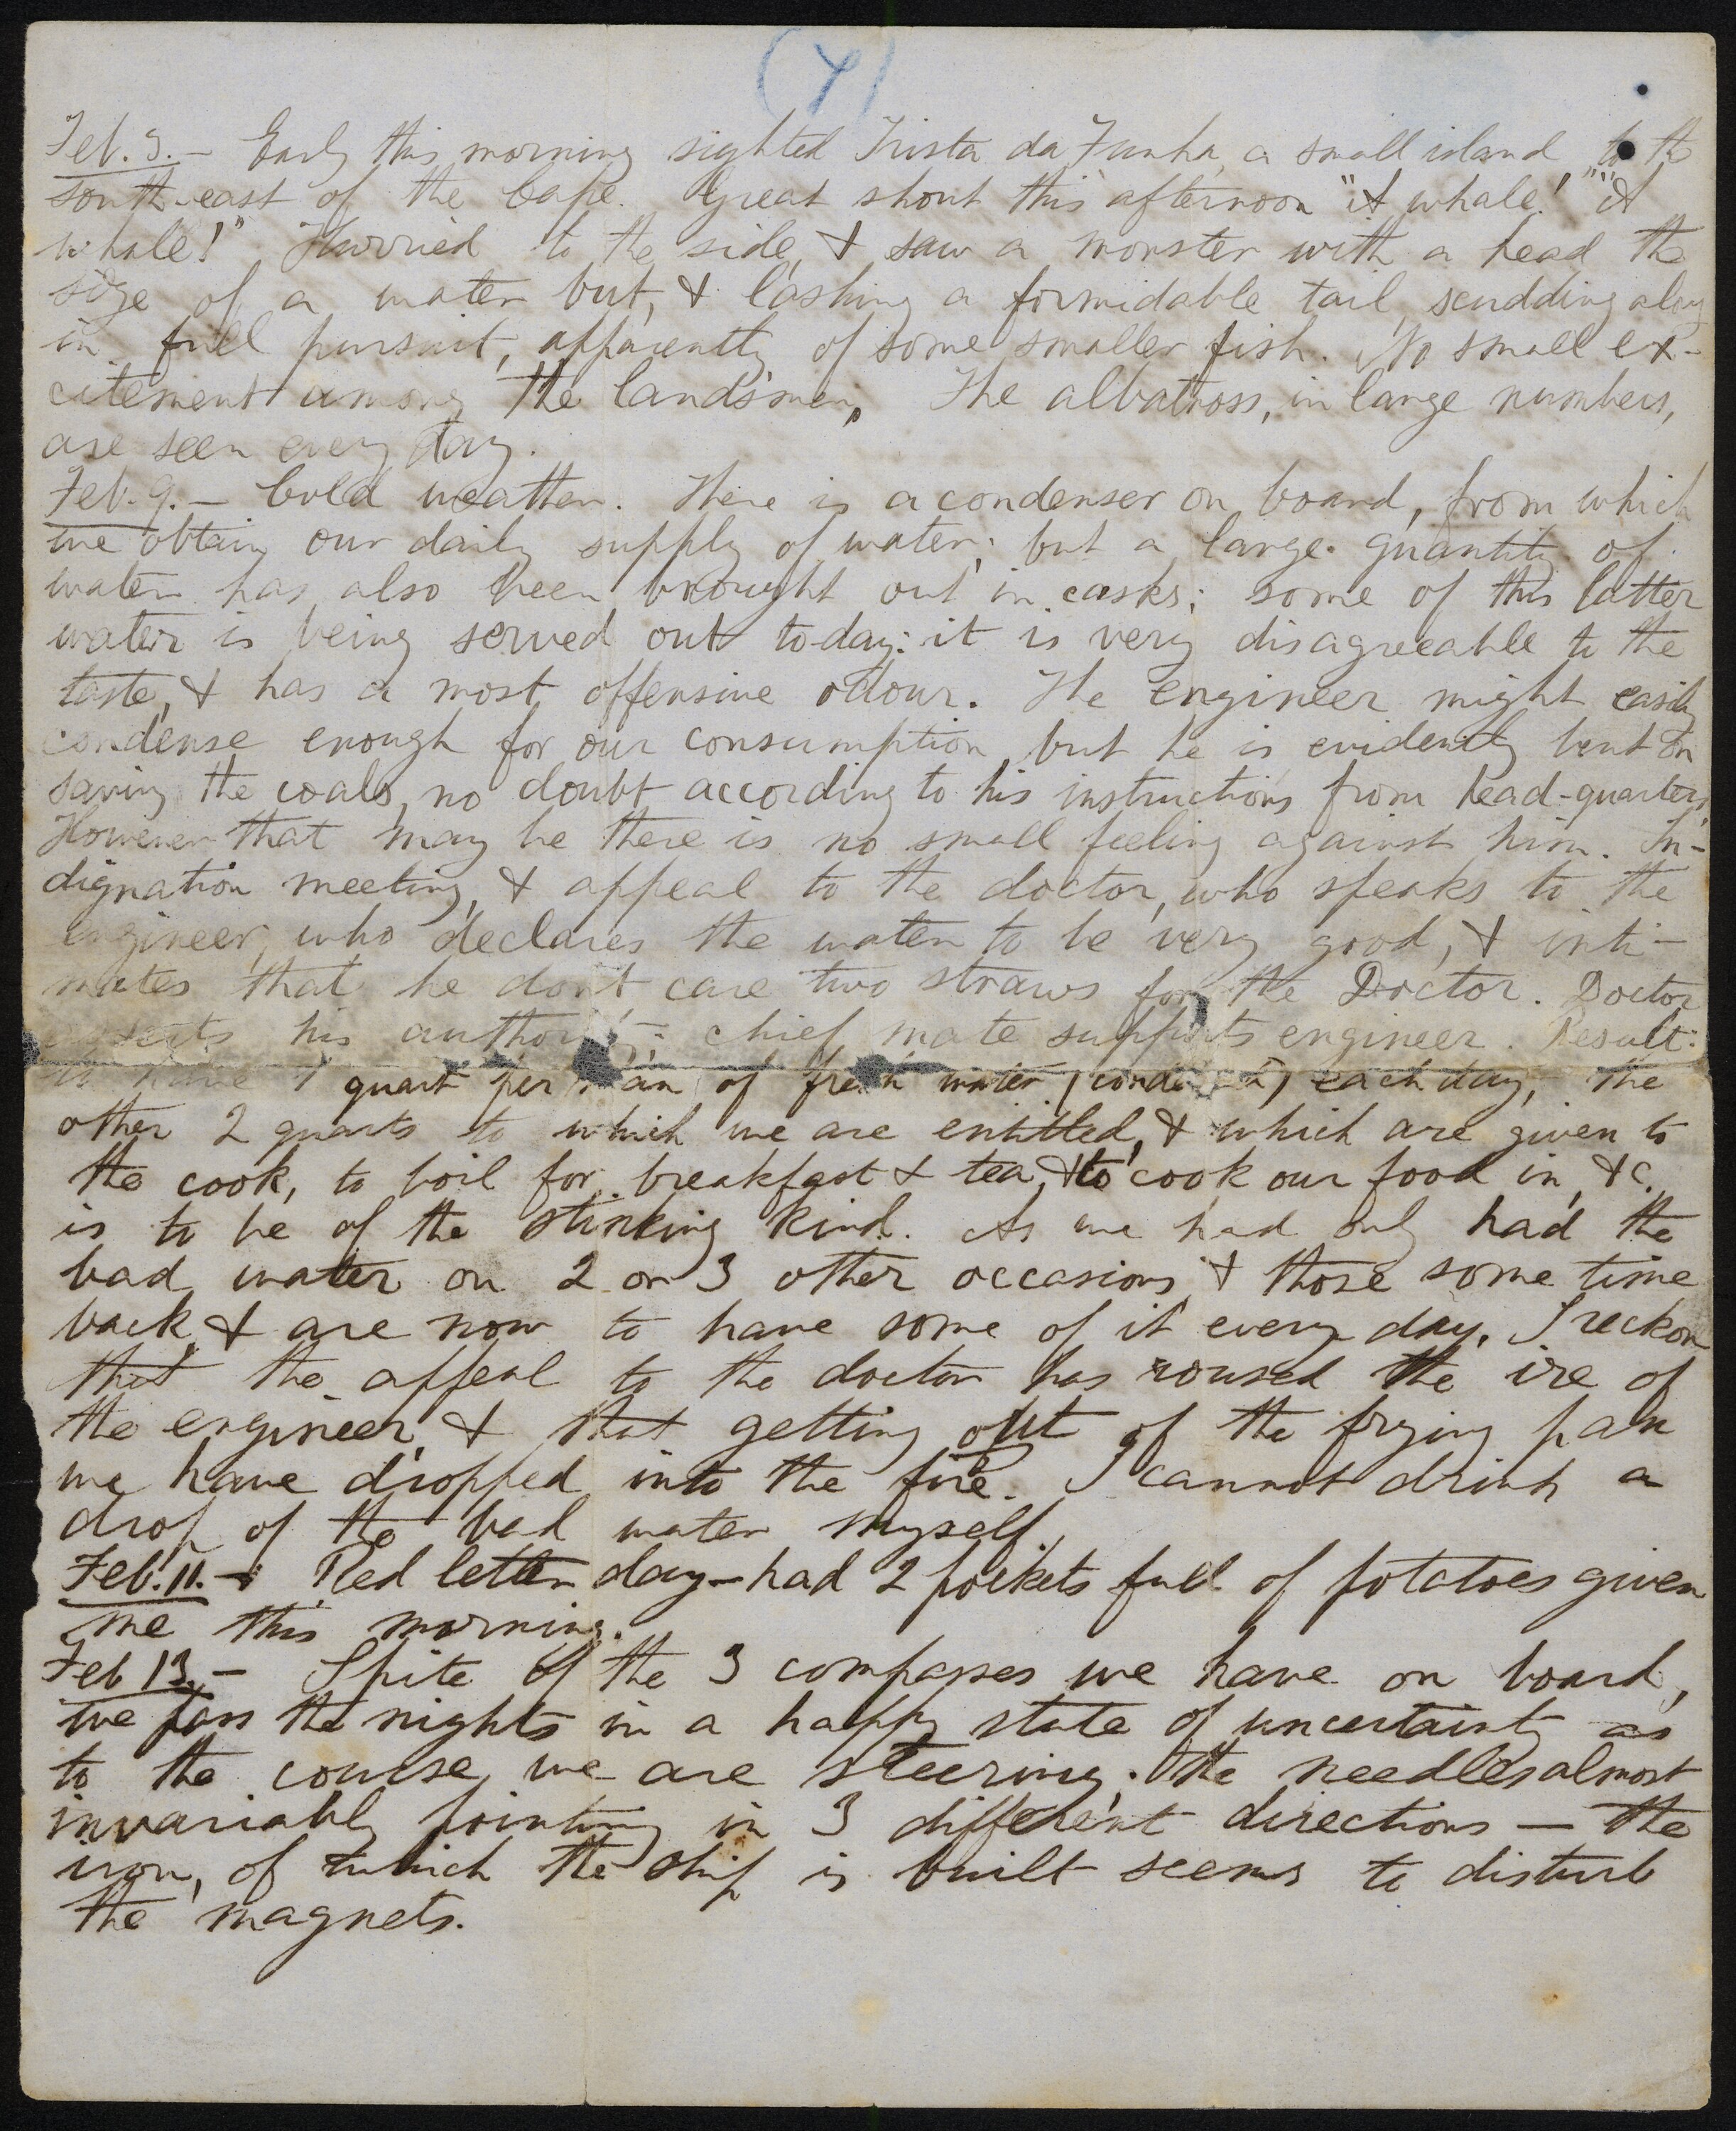 (7)
Feb. 3. - Early this morning sighted Trista da Funha, a small island to the
south-east of the Cape. Great shout this afternoon "A whale!" "A
whale!" Hurried to the side, & saw a monster with a head the
size of a water but, & lashing a formidable tail, scudding along
in full pursuit, apparently of some smaller fish. No small ex-
citement among the landsmen. The albatross, in large numbers,
are seen every day.
Feb. 9. - Cold weather. There is a condenser on board, from which
we obtain our daily supply of water; but a large quantity of
water has also been brought out in casks; some of this latter
water is being served out to-day: it is very disagreeable to the
taste, & has a most offensive odour. The engineer might easily
condense enough for our consumption, but he is evidently bent on
saving the coals, no doubt according to his instructions from head-quarters.
However that may be there is no small feeling against him. In-
dignation meeting, & appeal to the doctor, who speaks to the
engineer, who declares the water to be very good, & inti-
mates that he don't care two straws for the Doctor. Doctor
asserts his authority - chief mate supports engineer. Result:
we have 1 quart per man of fresh water (condensed) each day, the
other 2 quarts to which we are entitled, & which are given to
the cook, to boil for breakfast & tea, & to cook our food in, &c.
is to be of the stinking kind. As we had only had the
bad water on 2 or 3 other occasions & those some time
back, & are now to have some of it every day, I reckon
that the appeal to the doctor has roused the ire of
the engineer, & that getting out of the frying pan
we have dropped into the fire. I cannot drink a
drop of the bad water myself.
Feb. 11. - Red letter day - had 2 pockets full of potatoes given
me this morning.
Feb 13. - Spite of the 3 compasses we have on board,
we pass the nights in a happy state of uncertainty as
to the course we are steering. The needles almost
invariably pointing in 3 different directions - the
iron, of which the ship is built seems to disturb
the magnets.